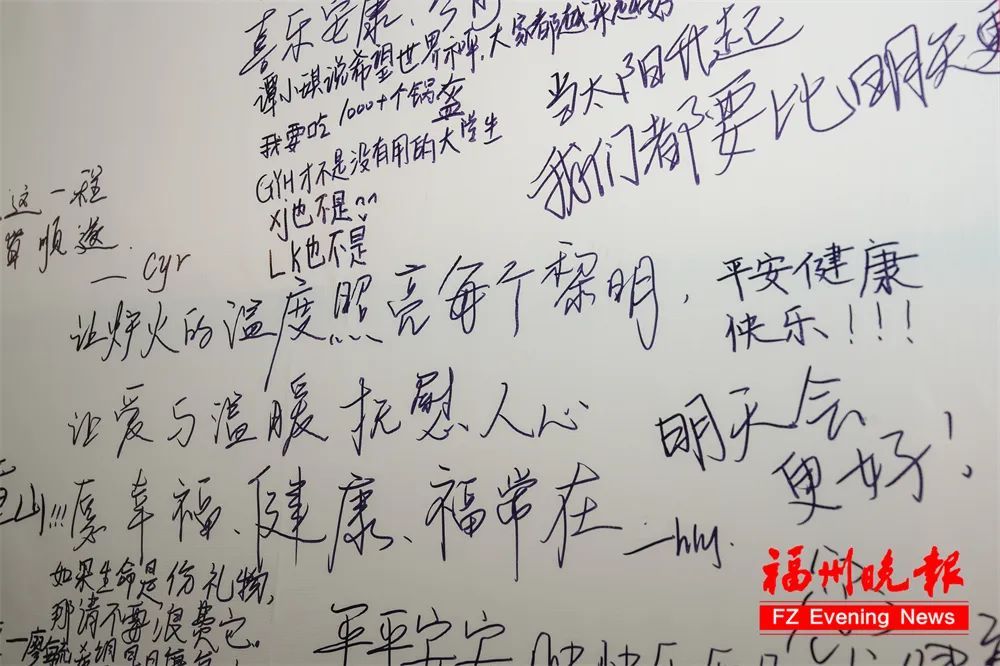 喜乐安康
谭小琪说希望世界和平,大家都越来越好
我要吃1000+个锅盔
GYH才不是没有用的大学生
xj也不是^^
LK也不是
当太阳升起
我们都要比明天更
这一程
顺遂.
— Cyr
让炉火的温度照亮每个黎明,
让爱与温暖抚慰人心
幸福、健康、福常在
—hhy.
平安健康
快乐!!!
明天会
更好!
山!!!
如果生命是份礼物,
那请不要浪费它。
平平安安
福州晚报
FZ Evening News